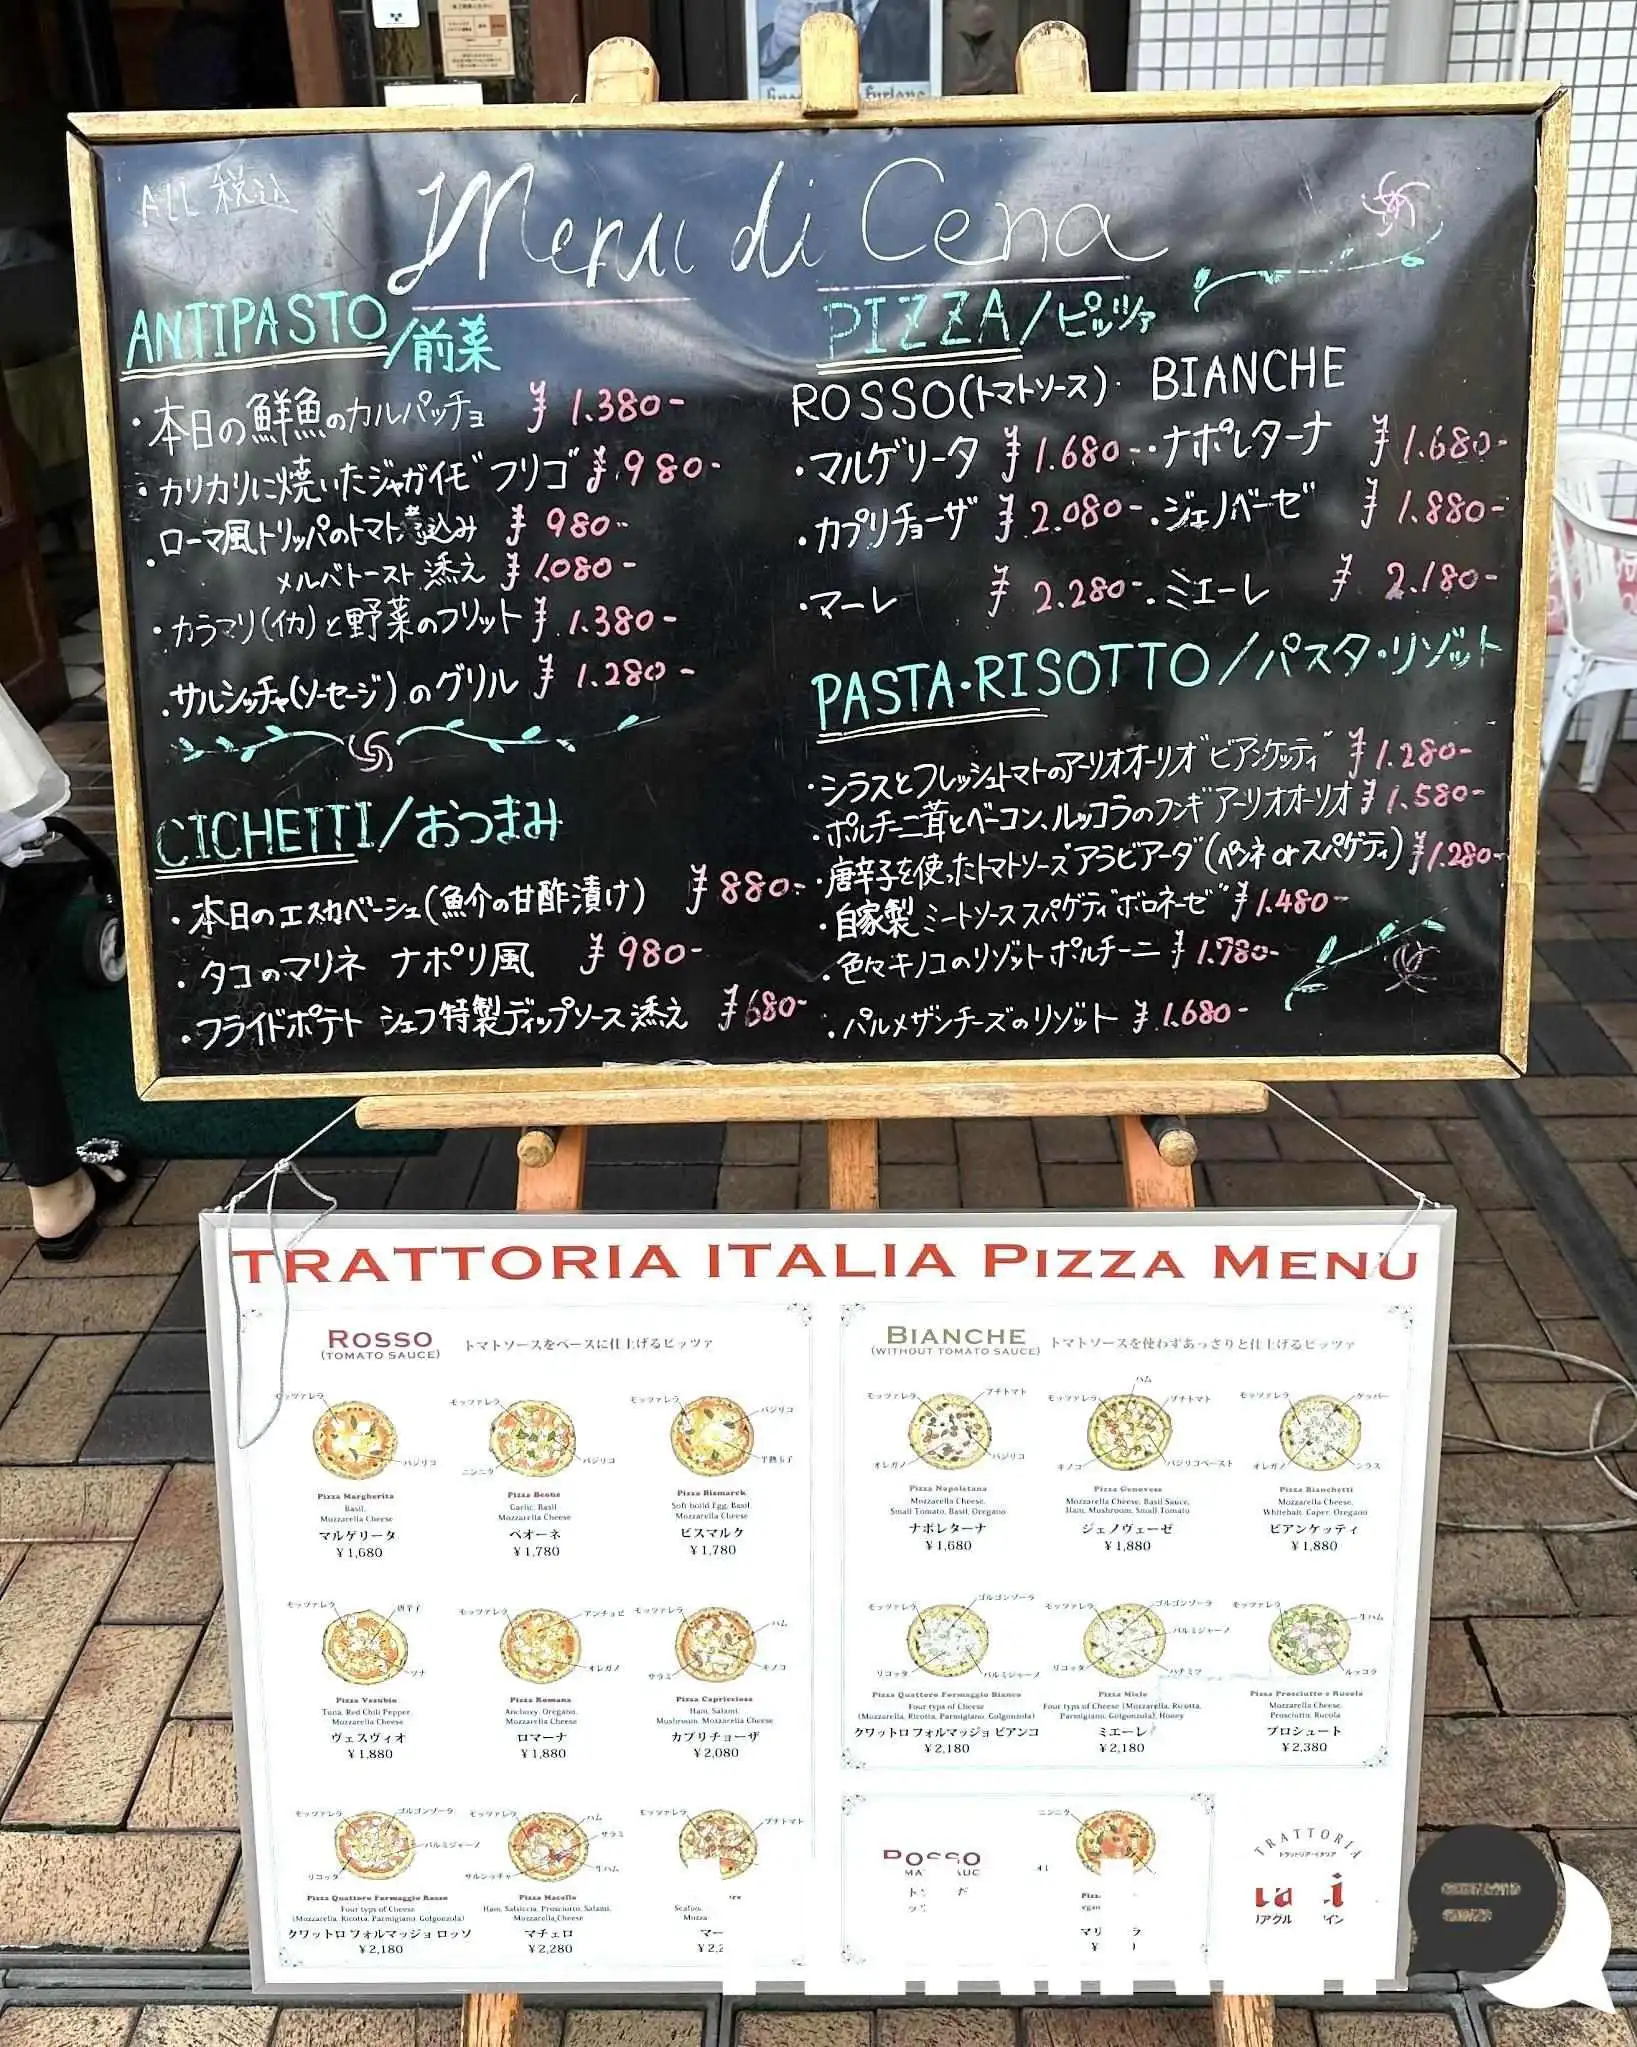 ALL 税込
Menu di Cena
ANTIPASTO/前菜
・本日の鮮魚のカルパッチョ ¥1.380-
・カリカリに焼いたジャガイモ"フリゴ ¥980-
・ローマ風トリッパのトマト煮込み ¥980-
メルバトースト添え ¥1.080-
・カラマリ(イカ)と野菜のフリット ¥1.380-
・サルシッチャ(ソーセージ)のグリル ¥1.280-
CICHETTI/おつまみ
・本日のエスカベーシュ(魚介の甘酢漬け) ¥880-
・タコのマリネ ナポリ風 ¥980-
・フライドポテト シェフ特製ディップソース添え ¥680-
PIZZA/ピッツァ
ROSSO(トマトソース)・BIANCHE
・マルゲリータ ¥1.680-・ナポレターナ ¥1.680-
・カプリチョーザ ¥2.080-・ジェノベーゼ ¥1.880-
・マーレ ¥2.280-・ミエーレ ¥2.180-
PASTA・RISOTTO/パスタ・リゾット
・シラスとフレッシュトマトのアーリオオーリオ"ビアンケッティ" ¥1.280-
・ポルチーニ茸とベーコン、ルッコラのフンギアーリオオーリオ ¥1.580-
・唐辛子を使ったトマトソース"アラビアータ"(ペンネ or スパゲティ) ¥1.280-
・自家製ミートソース スパゲティ"ボロネーゼ" ¥1.480-
・色々キノコのリゾット ポルチーニ ¥1.780-
・パルメザンチーズのリゾット ¥1.680-
TRATTORIA ITALIA PIZZA MENU
ROSSO
(TOMATO SAUCE)
トマトソースをベースに仕上げるピッツァ
モッツァレラ
バジリコ
Pizza Margherita
Basil,
Mozzarella Cheese
マルゲリータ
¥1,680
モッツァレラ
ニンニク
バジリコ
Garlic, Basil
Mozzarella Cheese
ペオーネ
¥1,780
モッツァレラ
バジリコ
半熟玉子
Pizza Bismarck
Soft boild Egg, Basil,
Mozzarella Cheese
ビスマルク
¥1,780
モッツァレラ
唐辛子
ツナ
Pizza Vesubio
Tuna, Red Chili Pepper,
Mozzarella Cheese
ヴェスヴィオ
¥1,880
モッツァレラ
アンチョビ
オレガノ
Pizza Romana
Anchovy, Oregano,
Mozzarella Cheese
ロマーナ
¥1,880
モッツァレラ
ハム
サラミ
キノコ
Pizza Capricciosa
Ham, Salami,
Mushroom, Mozzarella Cheese
カプリチョーザ
¥2,080
モッツァレラ
ゴルゴンゾーラ
パルミジャーノ
リコッタ
Pizza Quattoro Formaggio Rosso
Four typs of Cheese
(Mozzarella, Ricotta, Parmigiano, Golgonzola)
クワットロ フォルマッジョ ロッソ
¥2,180
モッツァレラ
ハム
サラミ
サルシッチャ
生ハム
Pizza Macello
Ham, Salsiccia, Prosciutto, Salami,
Mozzarella Cheese
マチェロ
¥2,280
モッツァレラ
プチトマト
Seafoo
Mozza
マー
¥2,2
BIANCHE
(WITHOUT TOMATO SAUCE)
トマトソースを使わずあっさりと仕上げるピッツァ
モッツァレラ
プチトマト
オレガノ
バジリコ
Pizza Napoletana
Mozzarella Cheese,
Small Tomato, Basil, Oregano
ナポレターナ
¥1,680
ハム
モッツァレラ
プチトマト
キノコ
バジリコペースト
Pizza Genovese
Mozzarella Cheese, Basil Sauce,
Ham, Mushroom, Small Tomato
ジェノヴェーゼ
¥1,880
モッツァレラ
ケッパー
オレガノ
シラス
Pizza Bianchetti
Mozzarella Cheese,
Whitebait, Caper, Oregano
ビアンケッティ
¥1,880
モッツァレラ
ゴルゴンゾーラ
リコッタ
パルミジャーノ
Pizza Quattoro Formaggio Bianco
Four typs of Cheese
(Mozzarella, Ricotta, Parmigiano, Golgonzola)
クワットロ フォルマッジョ ビアンコ
¥2,180
モッツァレラ
ゴルゴンゾーラ
パルミジャーノ
リコッタ
ハチミツ
Pizza Miele
Four typs of Cheese (Mozzarella, Ricotta,
Parmigiano, Golgonzola), Honey
ミエーレ
¥2,180
モッツァレラ
生ハム
ルッコラ
Pizza Prosciutto e Rucola
Mozzarella Cheese,
Prosciutto, Rucola
プロシュート
¥2,380
ニンニク
TRATTORIA
トラットリア・イタリア